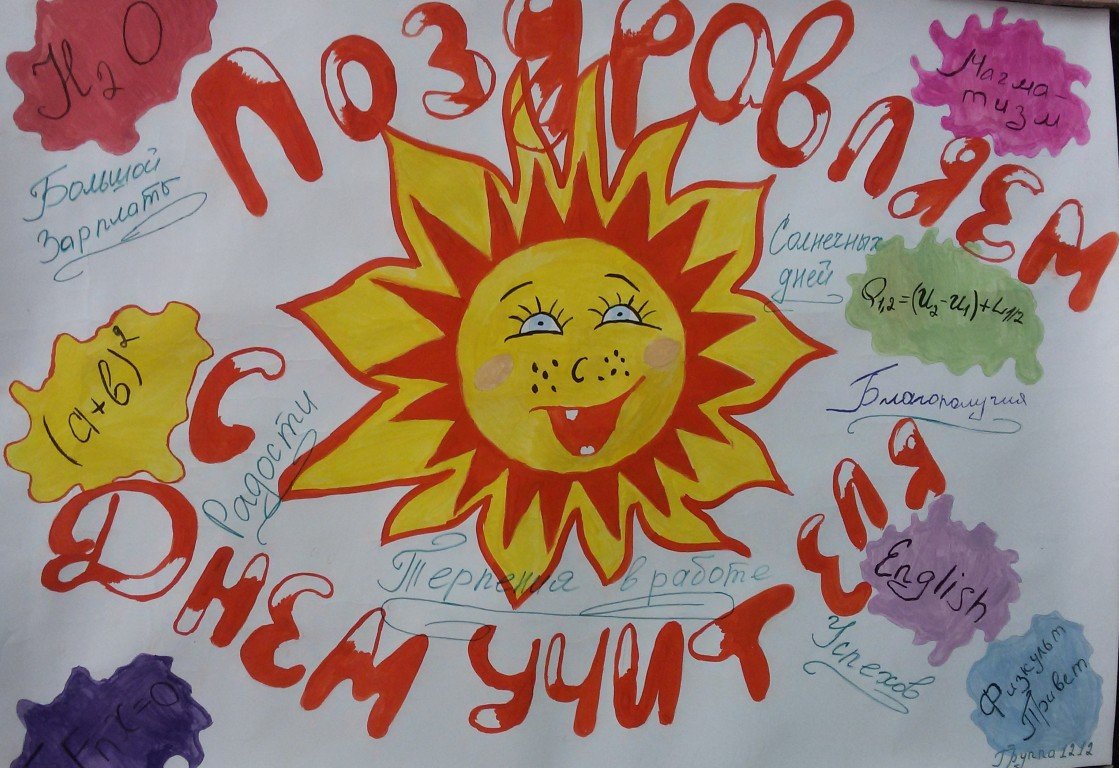 H2O
ПОЗДРАВЛЯЕМ
Магма-
тизм
Большой
Зарплаты
Солнечных
дней
Q1,2=(U2-U1)+L1,2
(a+b)²
С
Радости
Благополучия
ДНЕМ УЧИТ
ЕЛЯ
Терпения в работе
English
Успехов
Физкульт
Привет
Fnx=0
Группа 1212